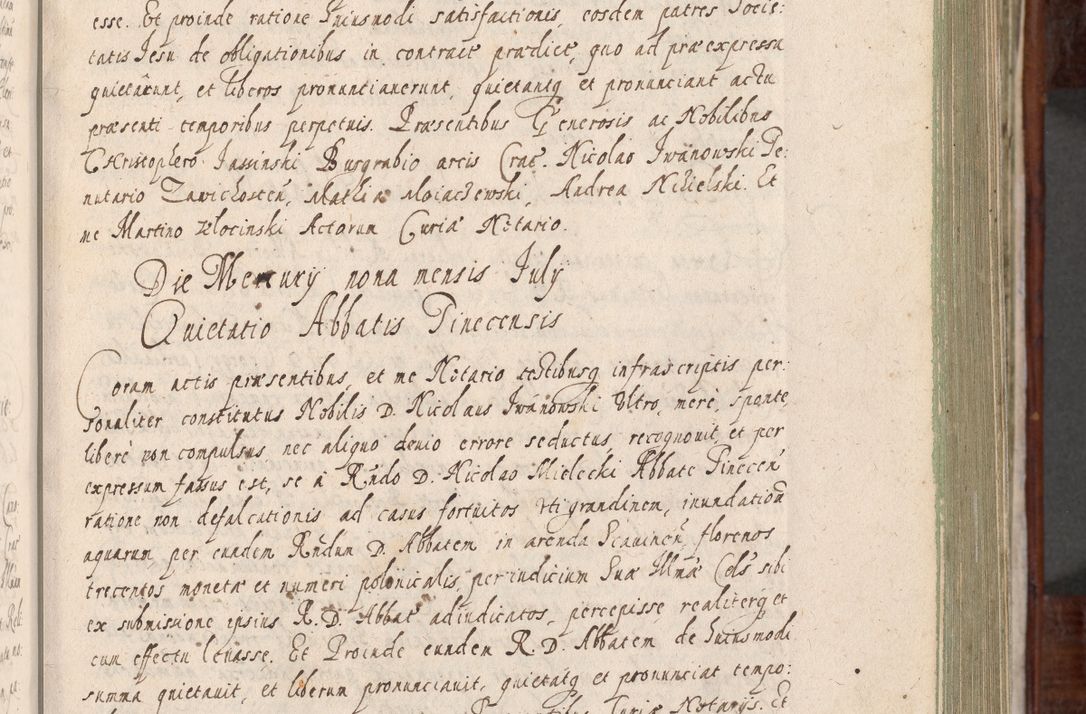 esse. Et proinde ratione huiusmodi satisfactionis, eosdem patres Socie:
tatis Jesu de obligationibus in contract prædict, quo ad præexpressa
quietârunt, et liberos pronuntiaverunt, quietantq et pronunciant actu
præsenti temporibus perpetuis. Præsentibus Generosis ac Nobilibus
Christophero Jassinski Burgrabio arcis Crac. Nicolao Iwanowski Pe:
nutario Zawichosten, Mathia, Andrea Nikielski. Et
me Martino Złocinski Actorum Curiæ Notario.
Die Mercurij nona mensis July
Quietatio Abbatis Tinecensis
Coram actis præsentibus, et me Notario testibusq infrascriptis per:
sonaliter constitutus Nobilis D. Nicolaus Iwanowski Ultro, merè, sponte,
liberè non compulsus nec aliquo devio errore seductus recognovit, et per
expressum fassus est, se à Rndo D. Nicolao Mielecki Abbate Tinecen
ratione non defalcationis ad casus fortuitos uti grandinem, inundation
aquarum, per eundem Rndum D. Abbatem in arenda florenos
trecentos monetæ et numeri polonicalis, per iudicium Suæ Illmæ Cels sibi
ex submissione ipsius R. D. Abbat adiudicatos, percepisse, realiterq et
cum effectu levasse. Et Proinde eundem R. D. Abbatem de huiusmodi
summa quietavit, et liberum pronunciavit, quietatq et pronunciat tempo:
Curiæ Notarijs. Et